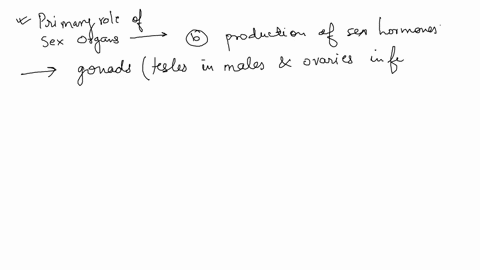 * Primary role of
Sex Organs → ⓑ production of sex hormones.
→ gonads (testes in males & ovaries in fe